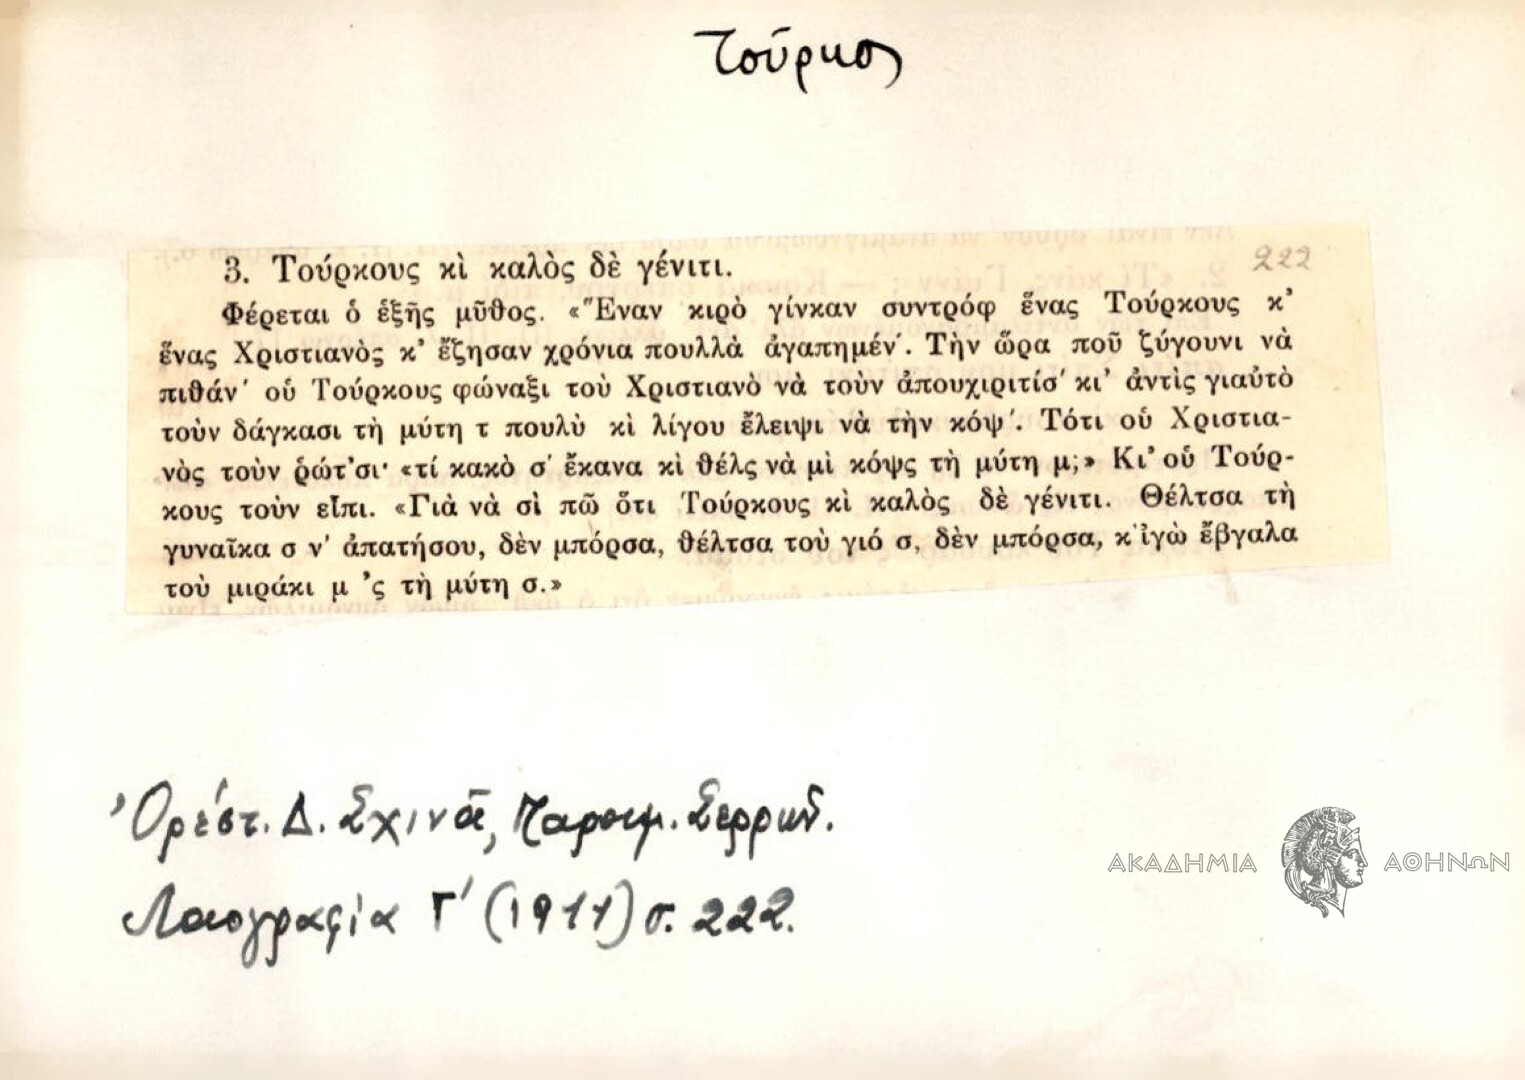 Τούρκος
222
3. Τούρκους κὶ καλὸς δὲ γένιτι.
Φέρεται ὁ ἑξῆς μῦθος. «Ἕναν κιρὸ γίνκαν συντρόφ ἕνας Τούρκους κ’
ἕνας Χριστιανὸς κ’ ἔζησαν χρόνια πουλλὰ ἀγαπημέν΄. Τὴν ὥρα ποῦ ζύγουνι νὰ
πιθάν΄ οὑ Τούρκους φώναξι τοὺ Χριστιανὸ νὰ τοὺν ἀπουχιριτίσ΄ κι’ ἀντὶς γιαὐτὸ
τοὺν δάγκασι τὴ μύτη τ πουλὺ κὶ λίγου ἔλειψι νὰ τὴν κόψ΄. Τότι οὑ Χριστια-
νὸς τοὺν ῥώτ’σι· «τί κακὸ σ΄ ἔκανα κὶ θέλς νὰ μὶ κόψς τὴ μύτη μ;» Κι’ οὑ Τούρ-
κους τοὺν εἶπι. «Γιὰ νὰ σὶ πῶ ὅτι Τούρκους κὶ καλὸς δὲ γένιτι. Θέλτσα τὴ
γυναῖκα σ ν’ ἀπατήσου, δὲν μπόρσα, θέλτσα τοὺ γιό σ, δὲν μπόρσα, κ΄ἰγὼ ἔβγαλα
τοὺ μιράκι μ ’ς τὴ μύτη σ.»
Ὀρέστ. Δ. Σχινᾶ, Παροιμ. Σερρῶν.
Λαογραφία Γ΄ (1911) σ. 222.
ΑΚΑΔΗΜΙΑ ΑΘΗΝΩΝ